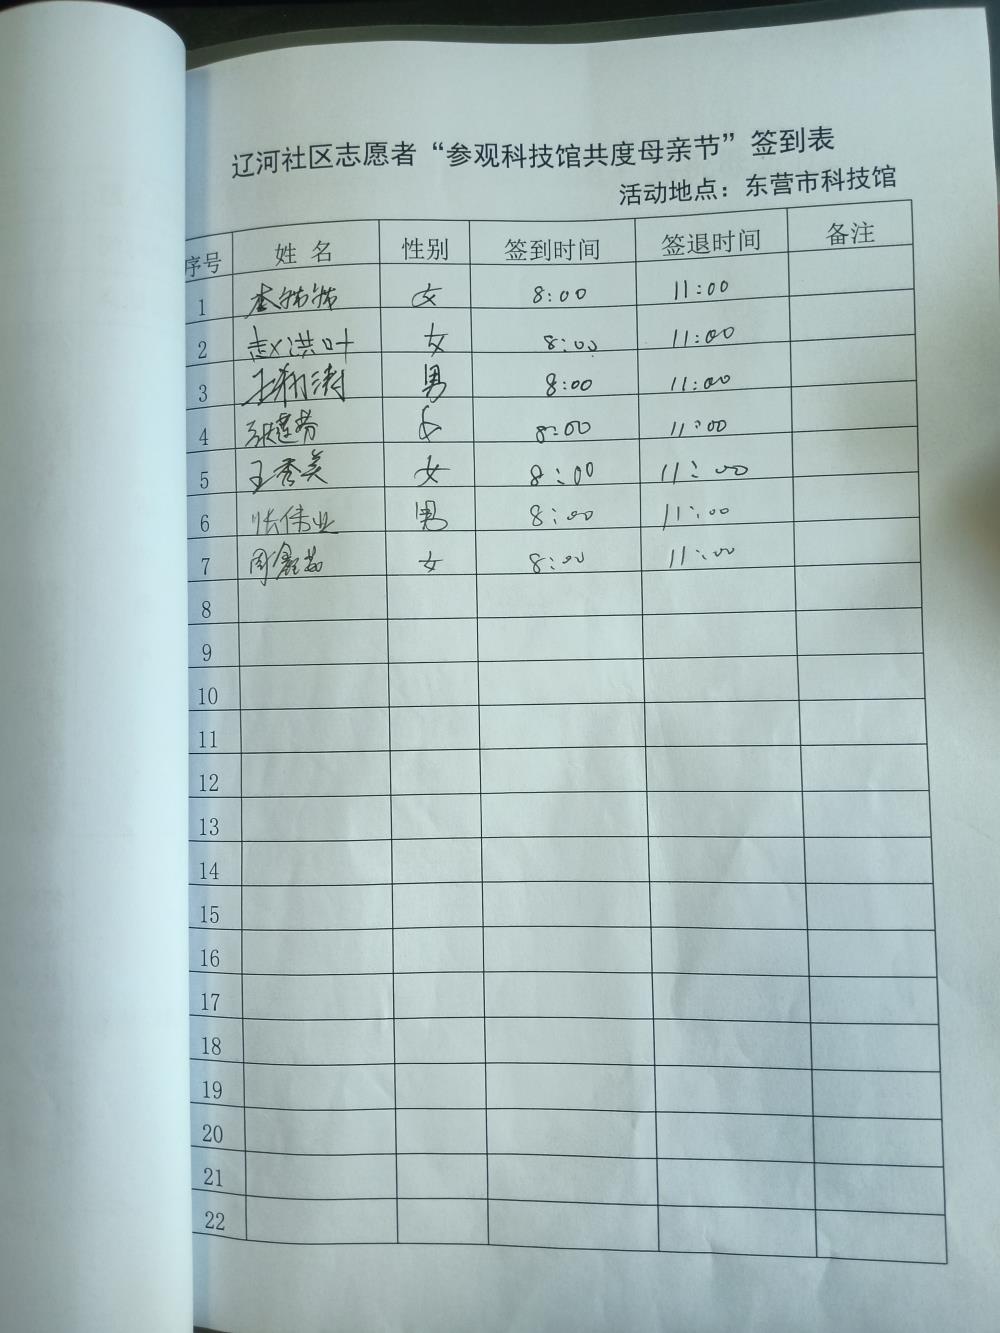 辽河社区志愿者“参观科技馆共度母亲节”签到表
活动地点：东营市科技馆
序号 姓 名 性别 签到时间 签退时间 备注
1 女 8:00 11:00
2 赵洪叶 女 8:00 11:00
3 男 8:00 11:00
4 张莲芬 女 8:00 11:00
5 王秀美 女 8:00 11:00
6 张伟业 男 8:00 11:00
7 周鑫蕊 女 8:00 11:00
8
9
10
11
12
13
14
15
16
17
18
19
20
21
22